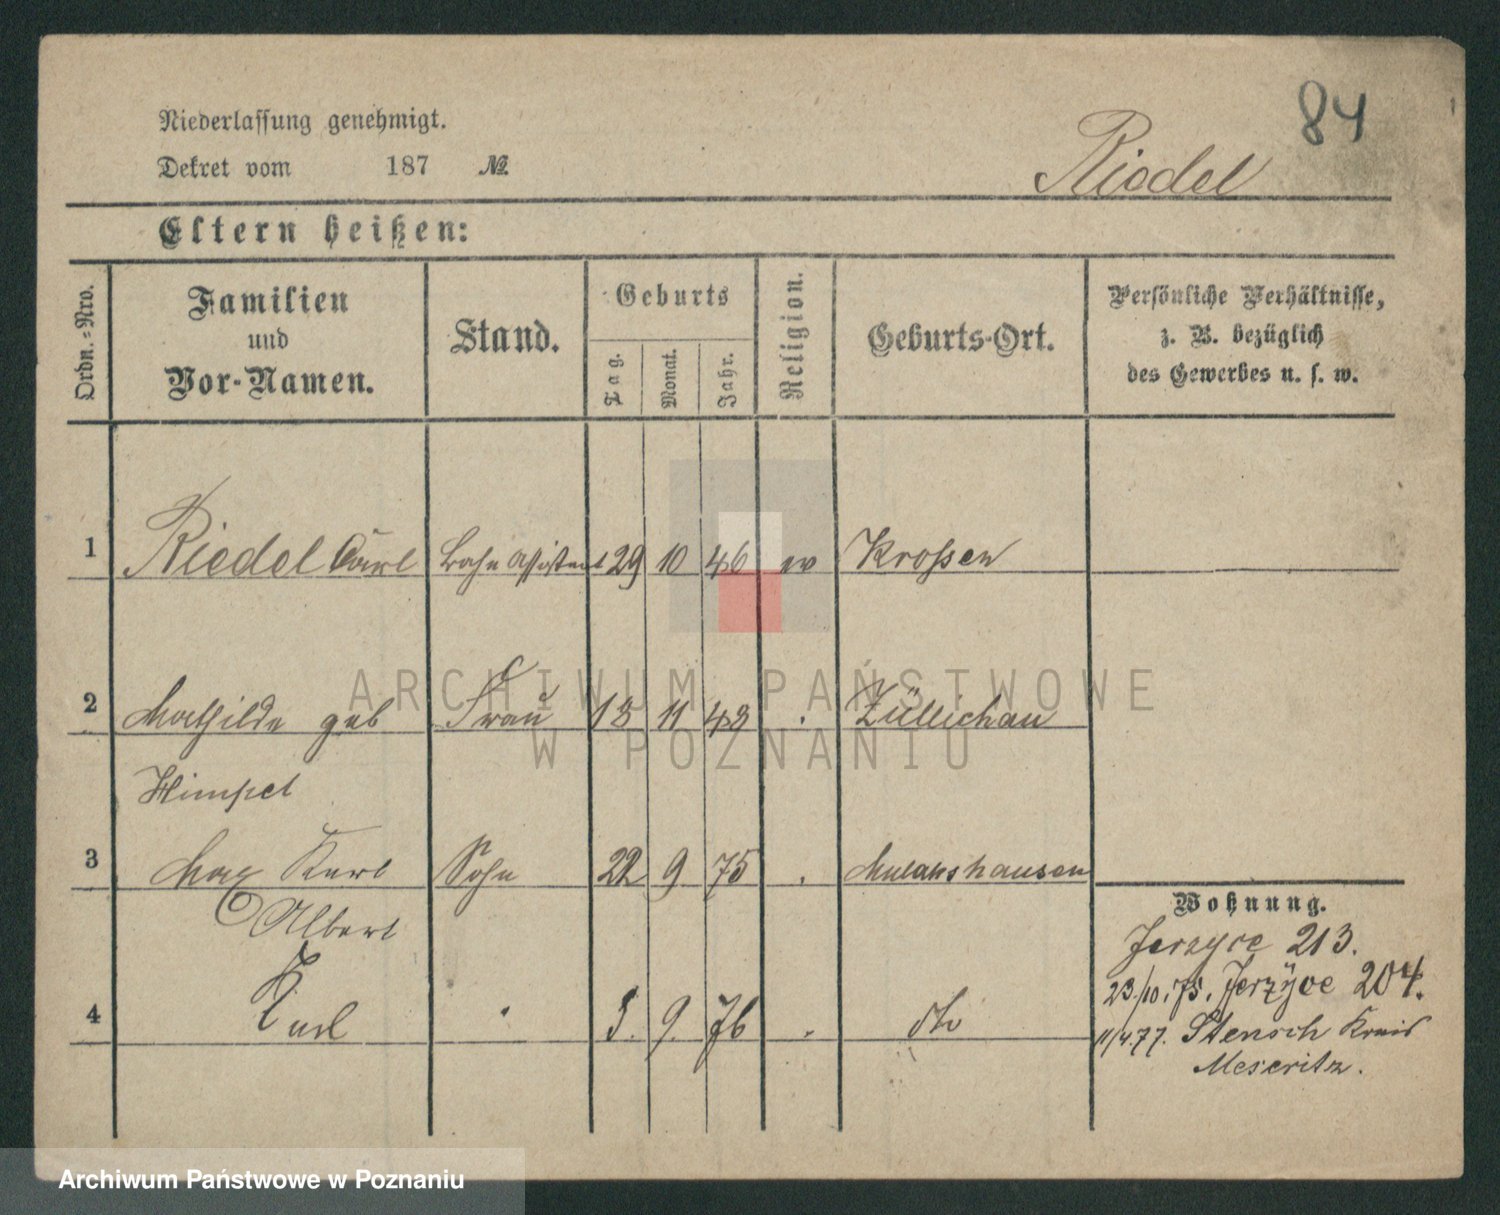 84
Niederlassung genehmigt.
Dekret vom 187 №
Riedel
Eltern heißen:
Ordn.-Nro.
Familien
und
Vor-Namen.
Stand.
Geburts
Tag.
Monat.
Jahr.
Religion.
Geburts-Ort.
Persönliche Verhältnisse,
z. B. bezüglich
des Gewerbes u. s. w.
1 Riedel Carl Bahn Assistent 29 10 46 ev Krossen
2 Mathilde geb Frau 13 11 48 . Züllichau
Himpel
3 Max Karl Sohn 22 9 75 .
Albert
Wohnung.
Jerzyce 213.
23./10.75. Jerzyce 204.
4 Karl " 5. 9. 76 . dto
11/4.77. Stensch Kreis
Meseritz.
ARCHIWUM PAŃSTWOWE
W POZNANIU
Archiwum Państwowe w Poznaniu